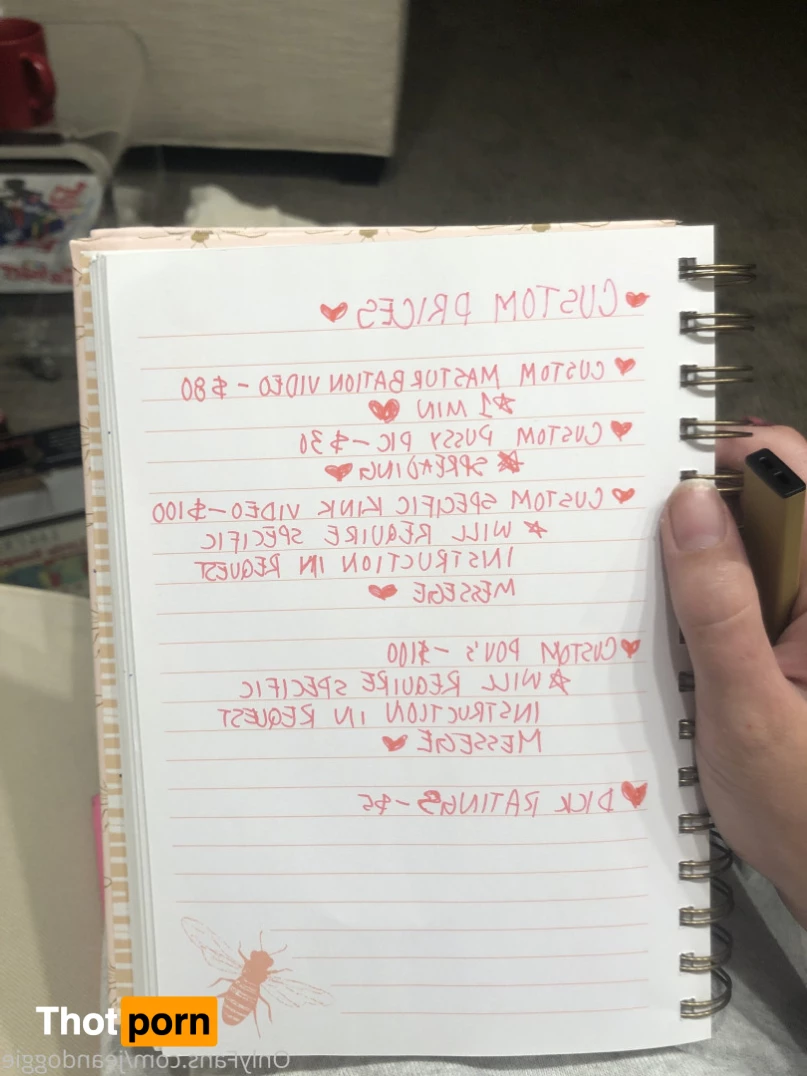 CUSTOM PRICES
CUSTOM MASTURBATION VIDEO - $80
1 MIN
CUSTOM PUSSY PIC - $30
SPREADING
CUSTOM SPECIFIC KINK VIDEO - $100
WILL REQUIRE SPECIFIC
INSTRUCTION IN REQUEST
MESSEGE
CUSTOM POV'S - $100
WILL REQUIRE SPECIFIC
INSTRUCTION IN REQUEST
MESSEGE
DICK RATINGS - $5
Thot porn
OnlyFans.com/jeandoggie